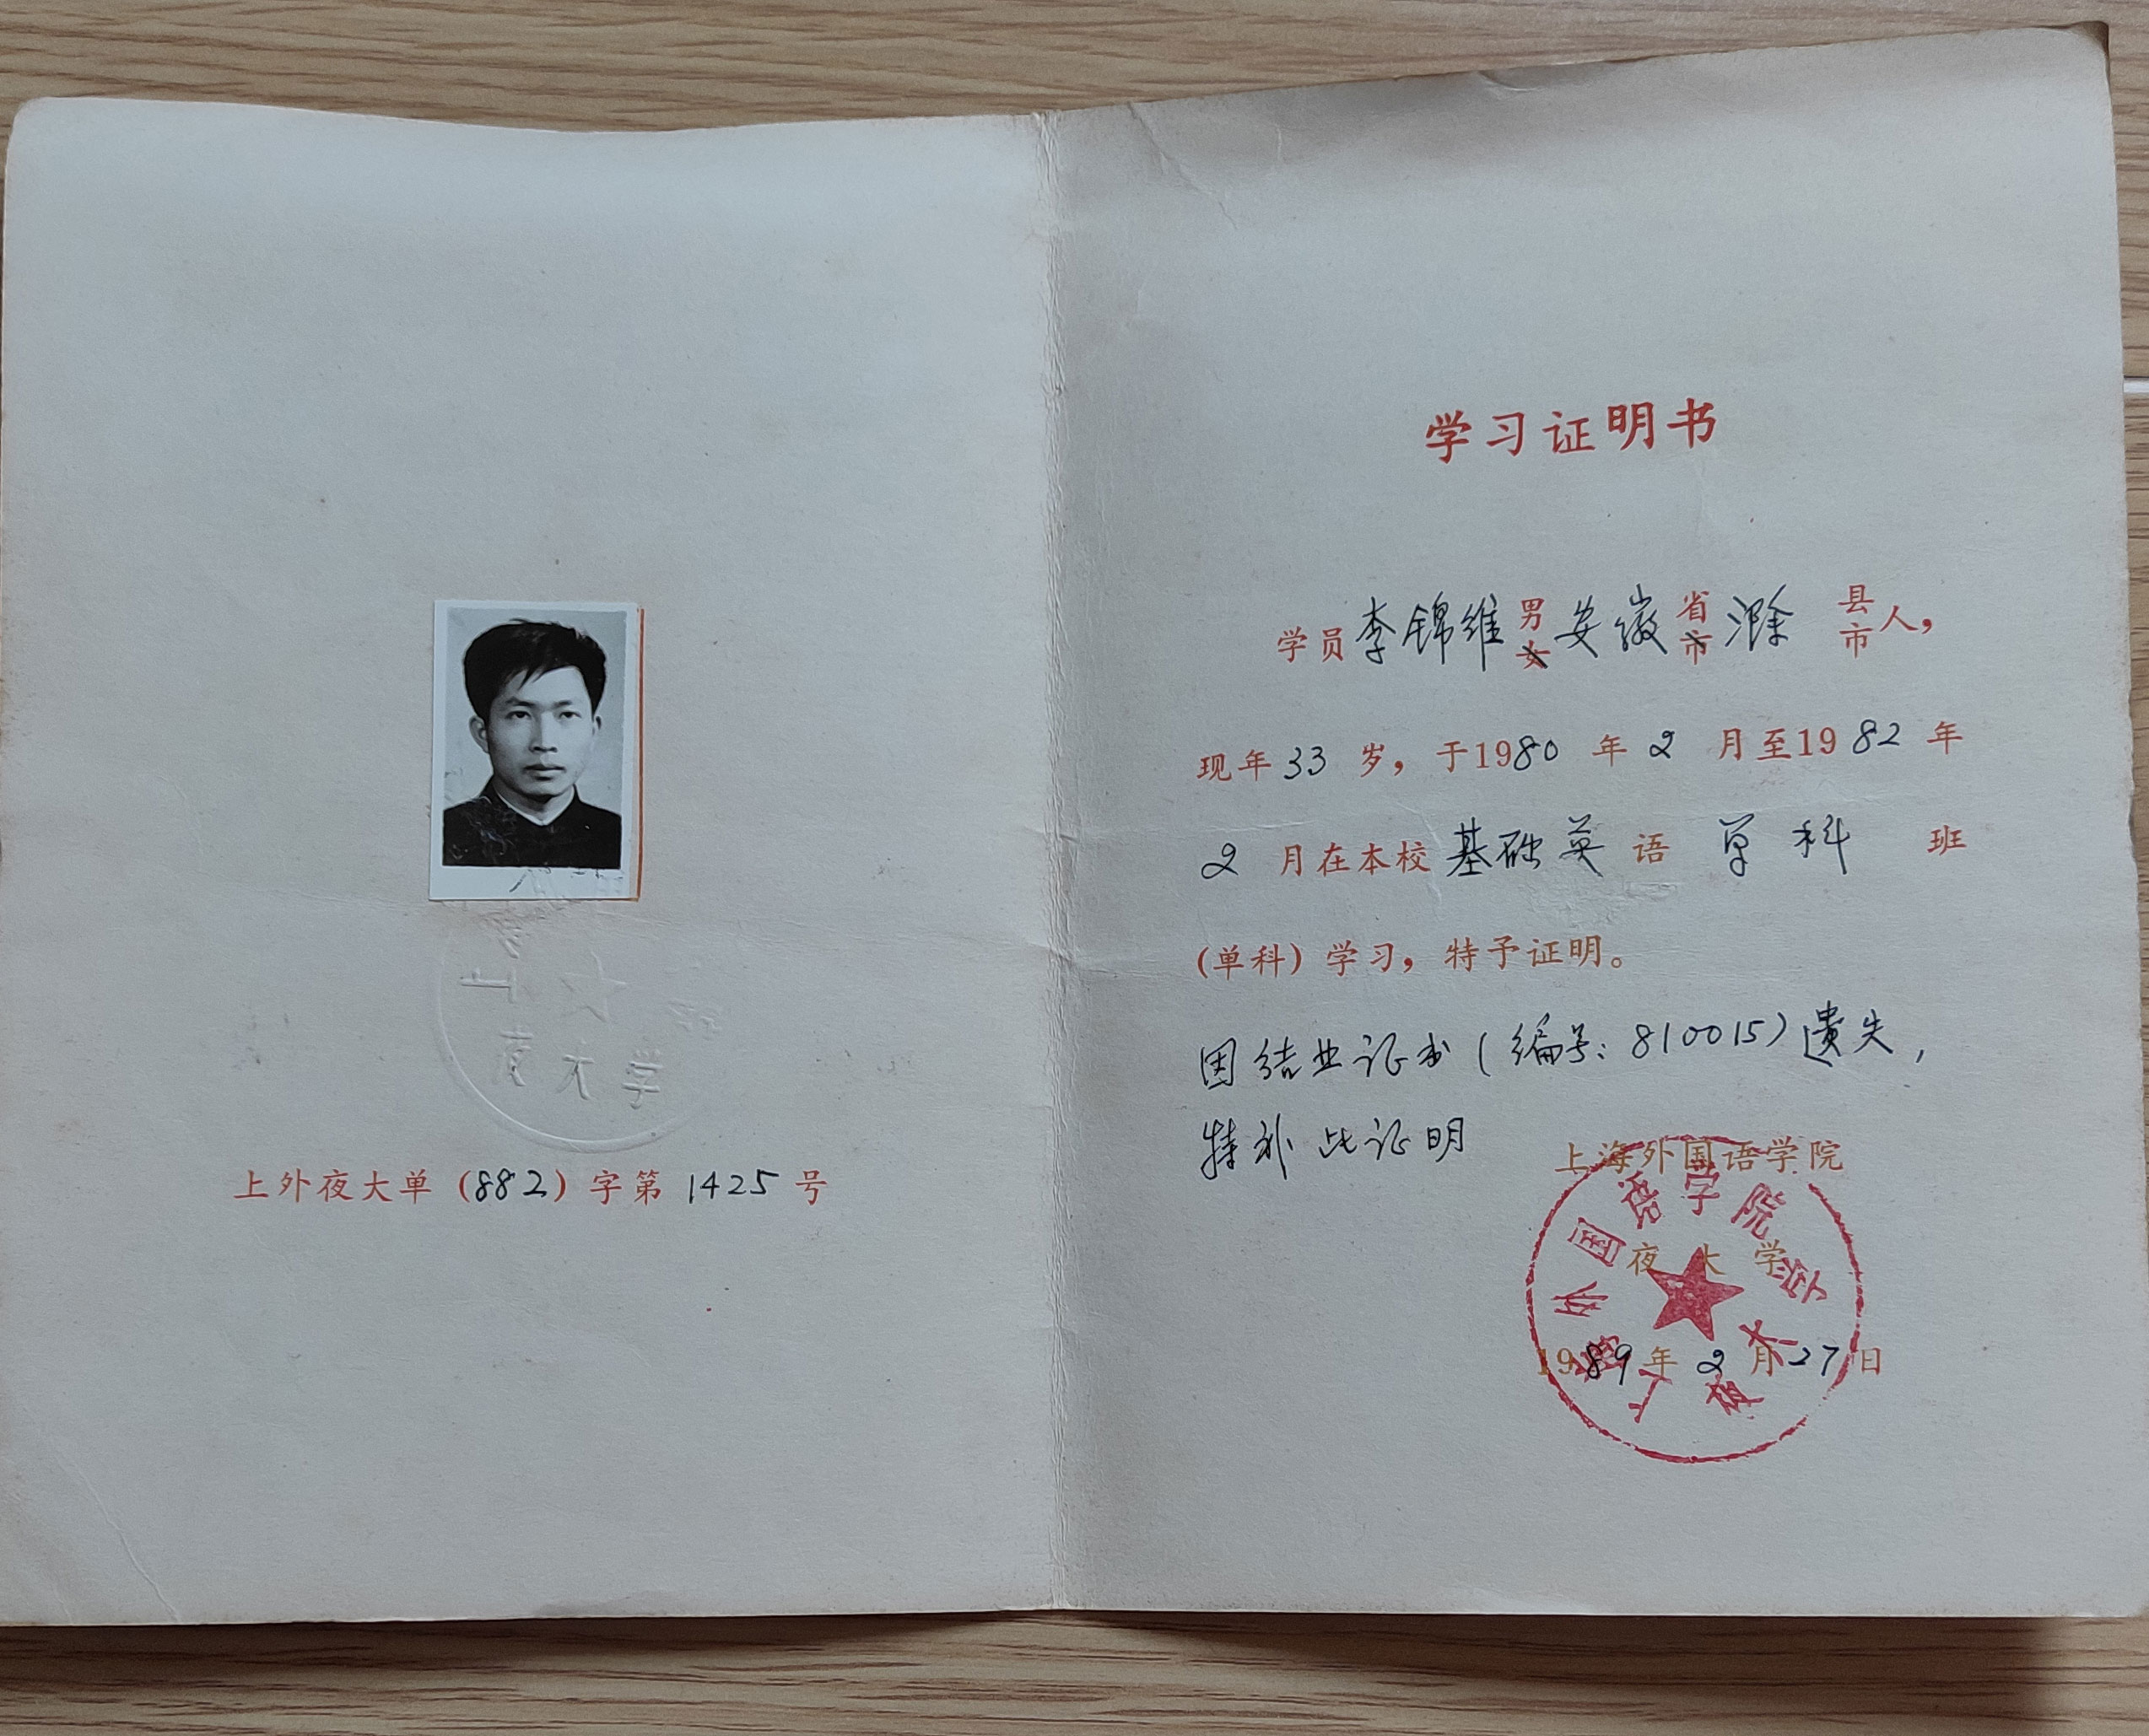 夜大学
上外夜大单(882)字第1425号
学习证明书
学员李锦维男女安徽省市滁县市人，
现年33岁，于1980年2月至1982年
2月在本校基础英语单科班
(单科)学习，特予证明。
因结业证书(编号：810015)遗失，
特补此证明
上海外国语学院
夜大学
1989年2月27日
上海外国语学院夜大学